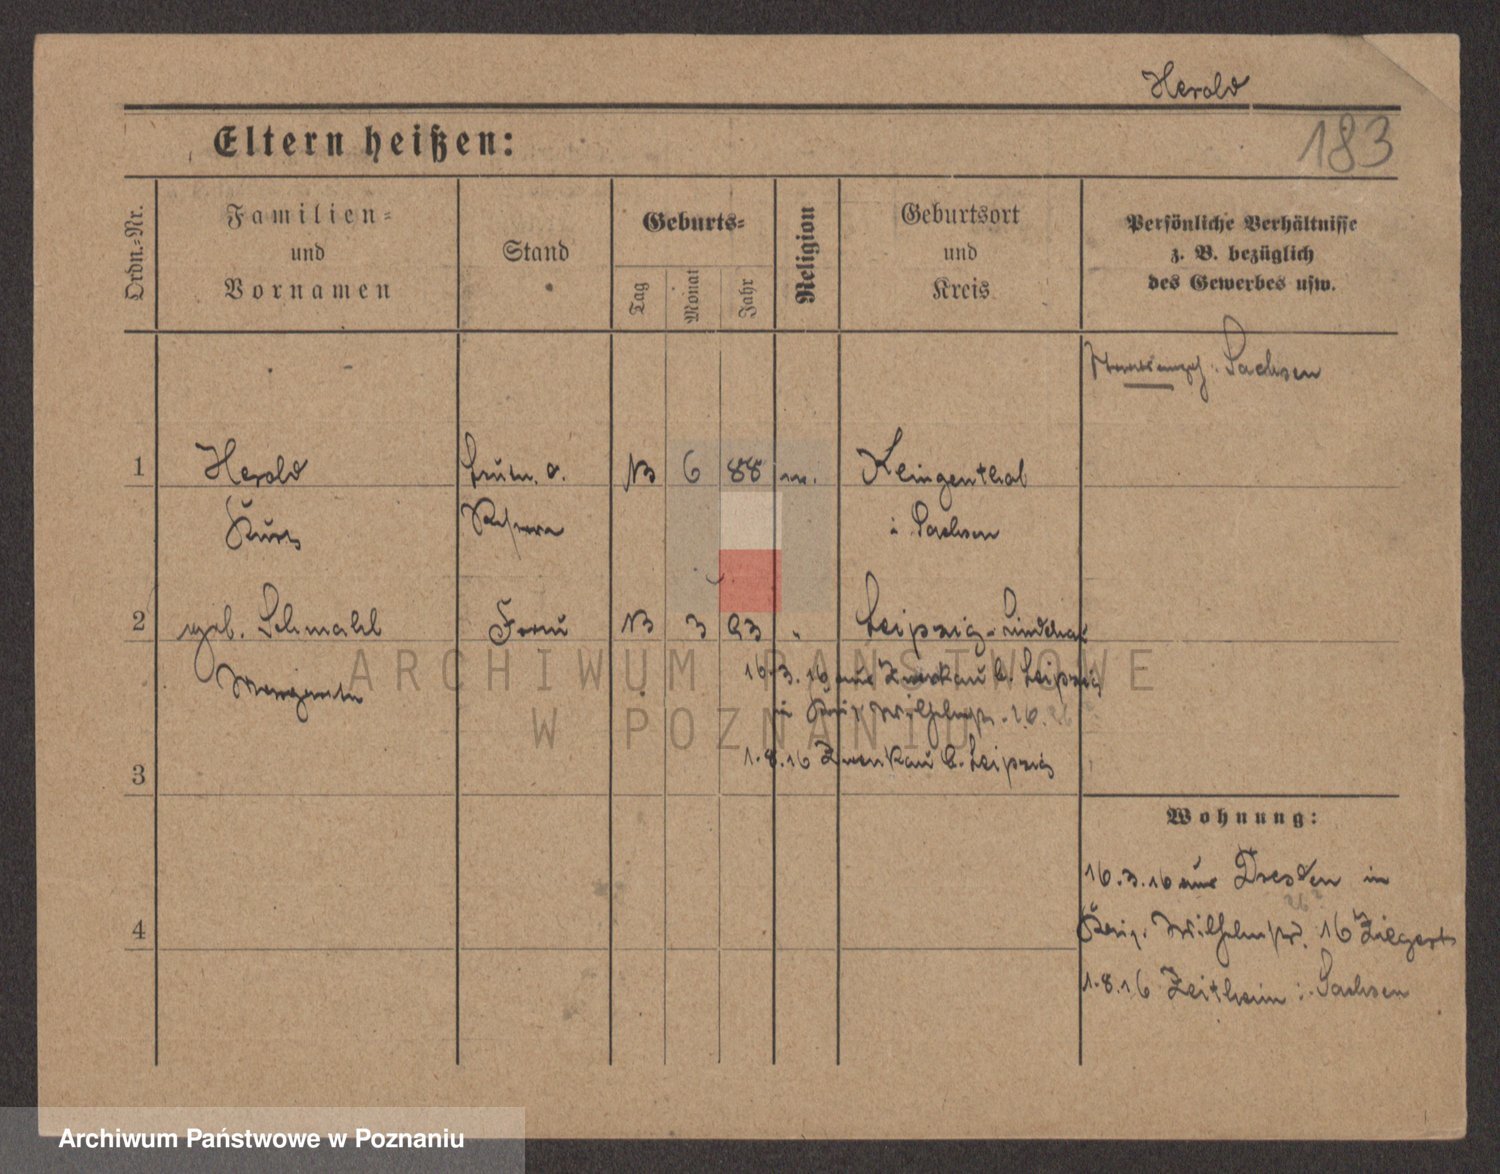 Herold
183
Eltern heißen:
Ordn.-Nr.
Familien-
und
Vornamen
Stand
Geburts-
Tag
Monat
Jahr
Religion
Geburtsort
und
Kreis
Persönliche Verhältnisse
z. B. bezüglich
des Gewerbes usw.
Sachsen
1
Herold
Leutn. d.
13
6
88
Klingenthal
Kurt
Reserve
i Sachsen
2
geb. Schmahl
Frau
13
3
93
"
Leipzig - Lindenau
Margarete
16.3.16 aus Zwenkau b. Leipzig
in Kais. Wilhelmstr. 16.
3
1.8.16 Zwenkau b. Leipzig
Wohnung:
16.3.16 aus Dresden in
4
Kais. Wilhelmstr. 16 Ziegert
1.8.16 Zeithain i. Sachsen
ARCHIWUM PAŃSTWOWE
W POZNANIU
Archiwum Państwowe w Poznaniu